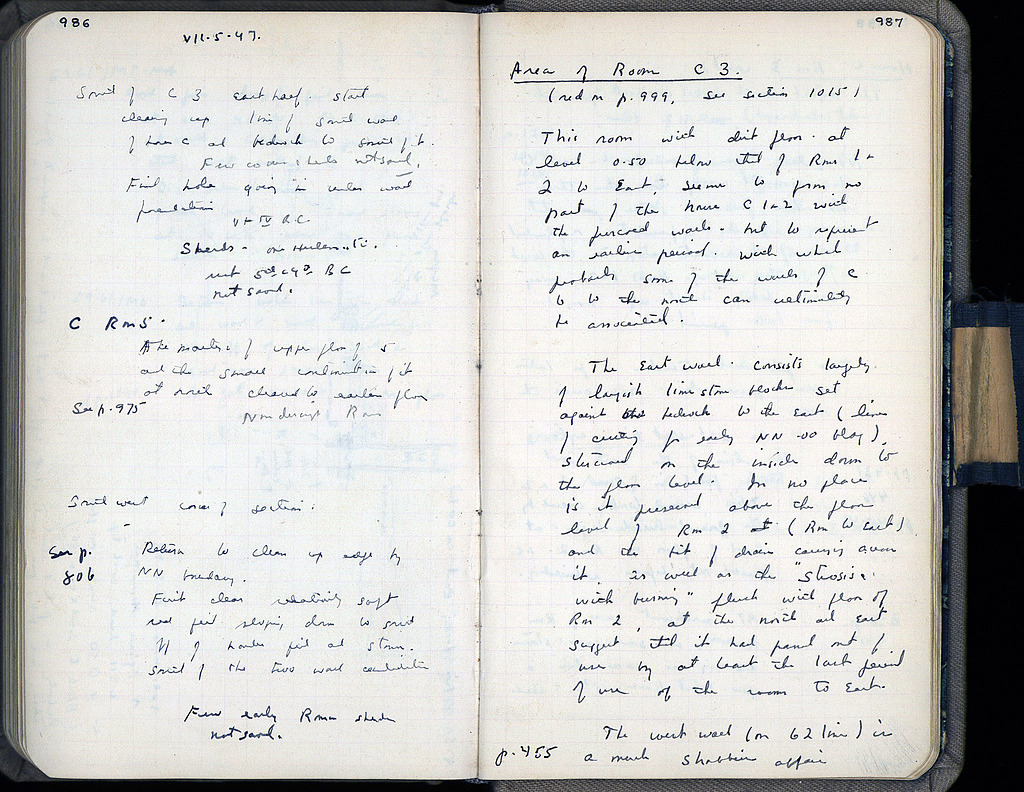 986
VII·5·47.
South of C 3 east half. Start
clearing up line of south wall
of house C and bedrock to south of it.
Few coarse sherds not saved.
Find hole going in under wall
foundation
V + IV B.C.
Sherds -
5th c 4th BC
not saved.
C Rm 5.
of upper floor of 5
and the small continuation of it
at north cleared to earlier floor
See p. 975
Nondescript Rom
South west corner of section.
See p.
806
Return to clean up edge by
NN boundary.
First clear relatively soft
red fill sloping down to south
off of harder fill and stones.
South of the two wall
Few early Roman sherds
not saved.
987
Area of Room C 3.
(red m p. 999, see section 1015)
This room with dirt floor at
level 0.50 below that of Rms 1 +
2 to East, seems to form no
part of the house C 1 + 2 with
the preserved walls - but to represent
an earlier period. With which
probably some of the walls of C
6 to the north can ultimately
be associated.
The East wall. Consists largely
of largish limestone blocks set
against bedrock to the East (line
of cutting for early NN-OO bldg),
stuccoed on the inside down to
the floor level. In no place
is it preserved above the floor
level of Rm 2 (Rm to East)
and the bit of drain coming over
it, as well as the "Strosis
with burning" flush with floor of
Rm 2, at the north and East
suggest that it had passed out of
use by at least the last period
of use of the rooms to East.
The west wall (on 62 line) is
p. 455
a much shabbier affair